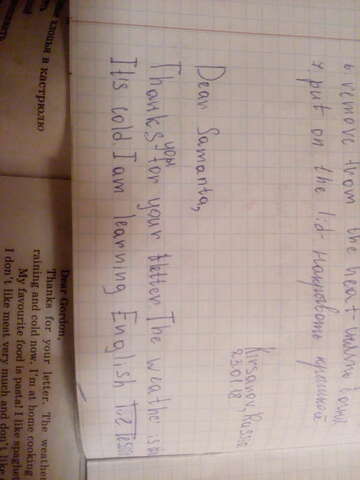 6 remove from the heat
7 put on the lid - накрывать крышкой
Kirsanov, Russia
Dear Samanta,
Thanks you for your letter. The weathe is
It's cold. I am learning English
в кастрюлю
Dear Gordon,
Thanks for your letter. The weather
raining and cold now. I'm at home cooking
My favourite food is pasta! I like spaghe
I don't like meat very much and don't like